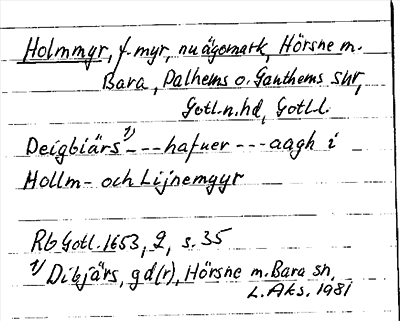 Holmmyr, f. myr, nu ägomark, Hörsne m.
Bara, Dalhems o. Ganthems snr,
Gotl.n.hd, Gotl.l.
Deigbiärs 1) - - - hafuer - - - aagh i
Hollm- och Lijnemyyr
Rb Gotl. 1653, 2, s. 35
1) Dibjärs, gd(r), Hörsne m. Bara sn,
L. Aks. 1981